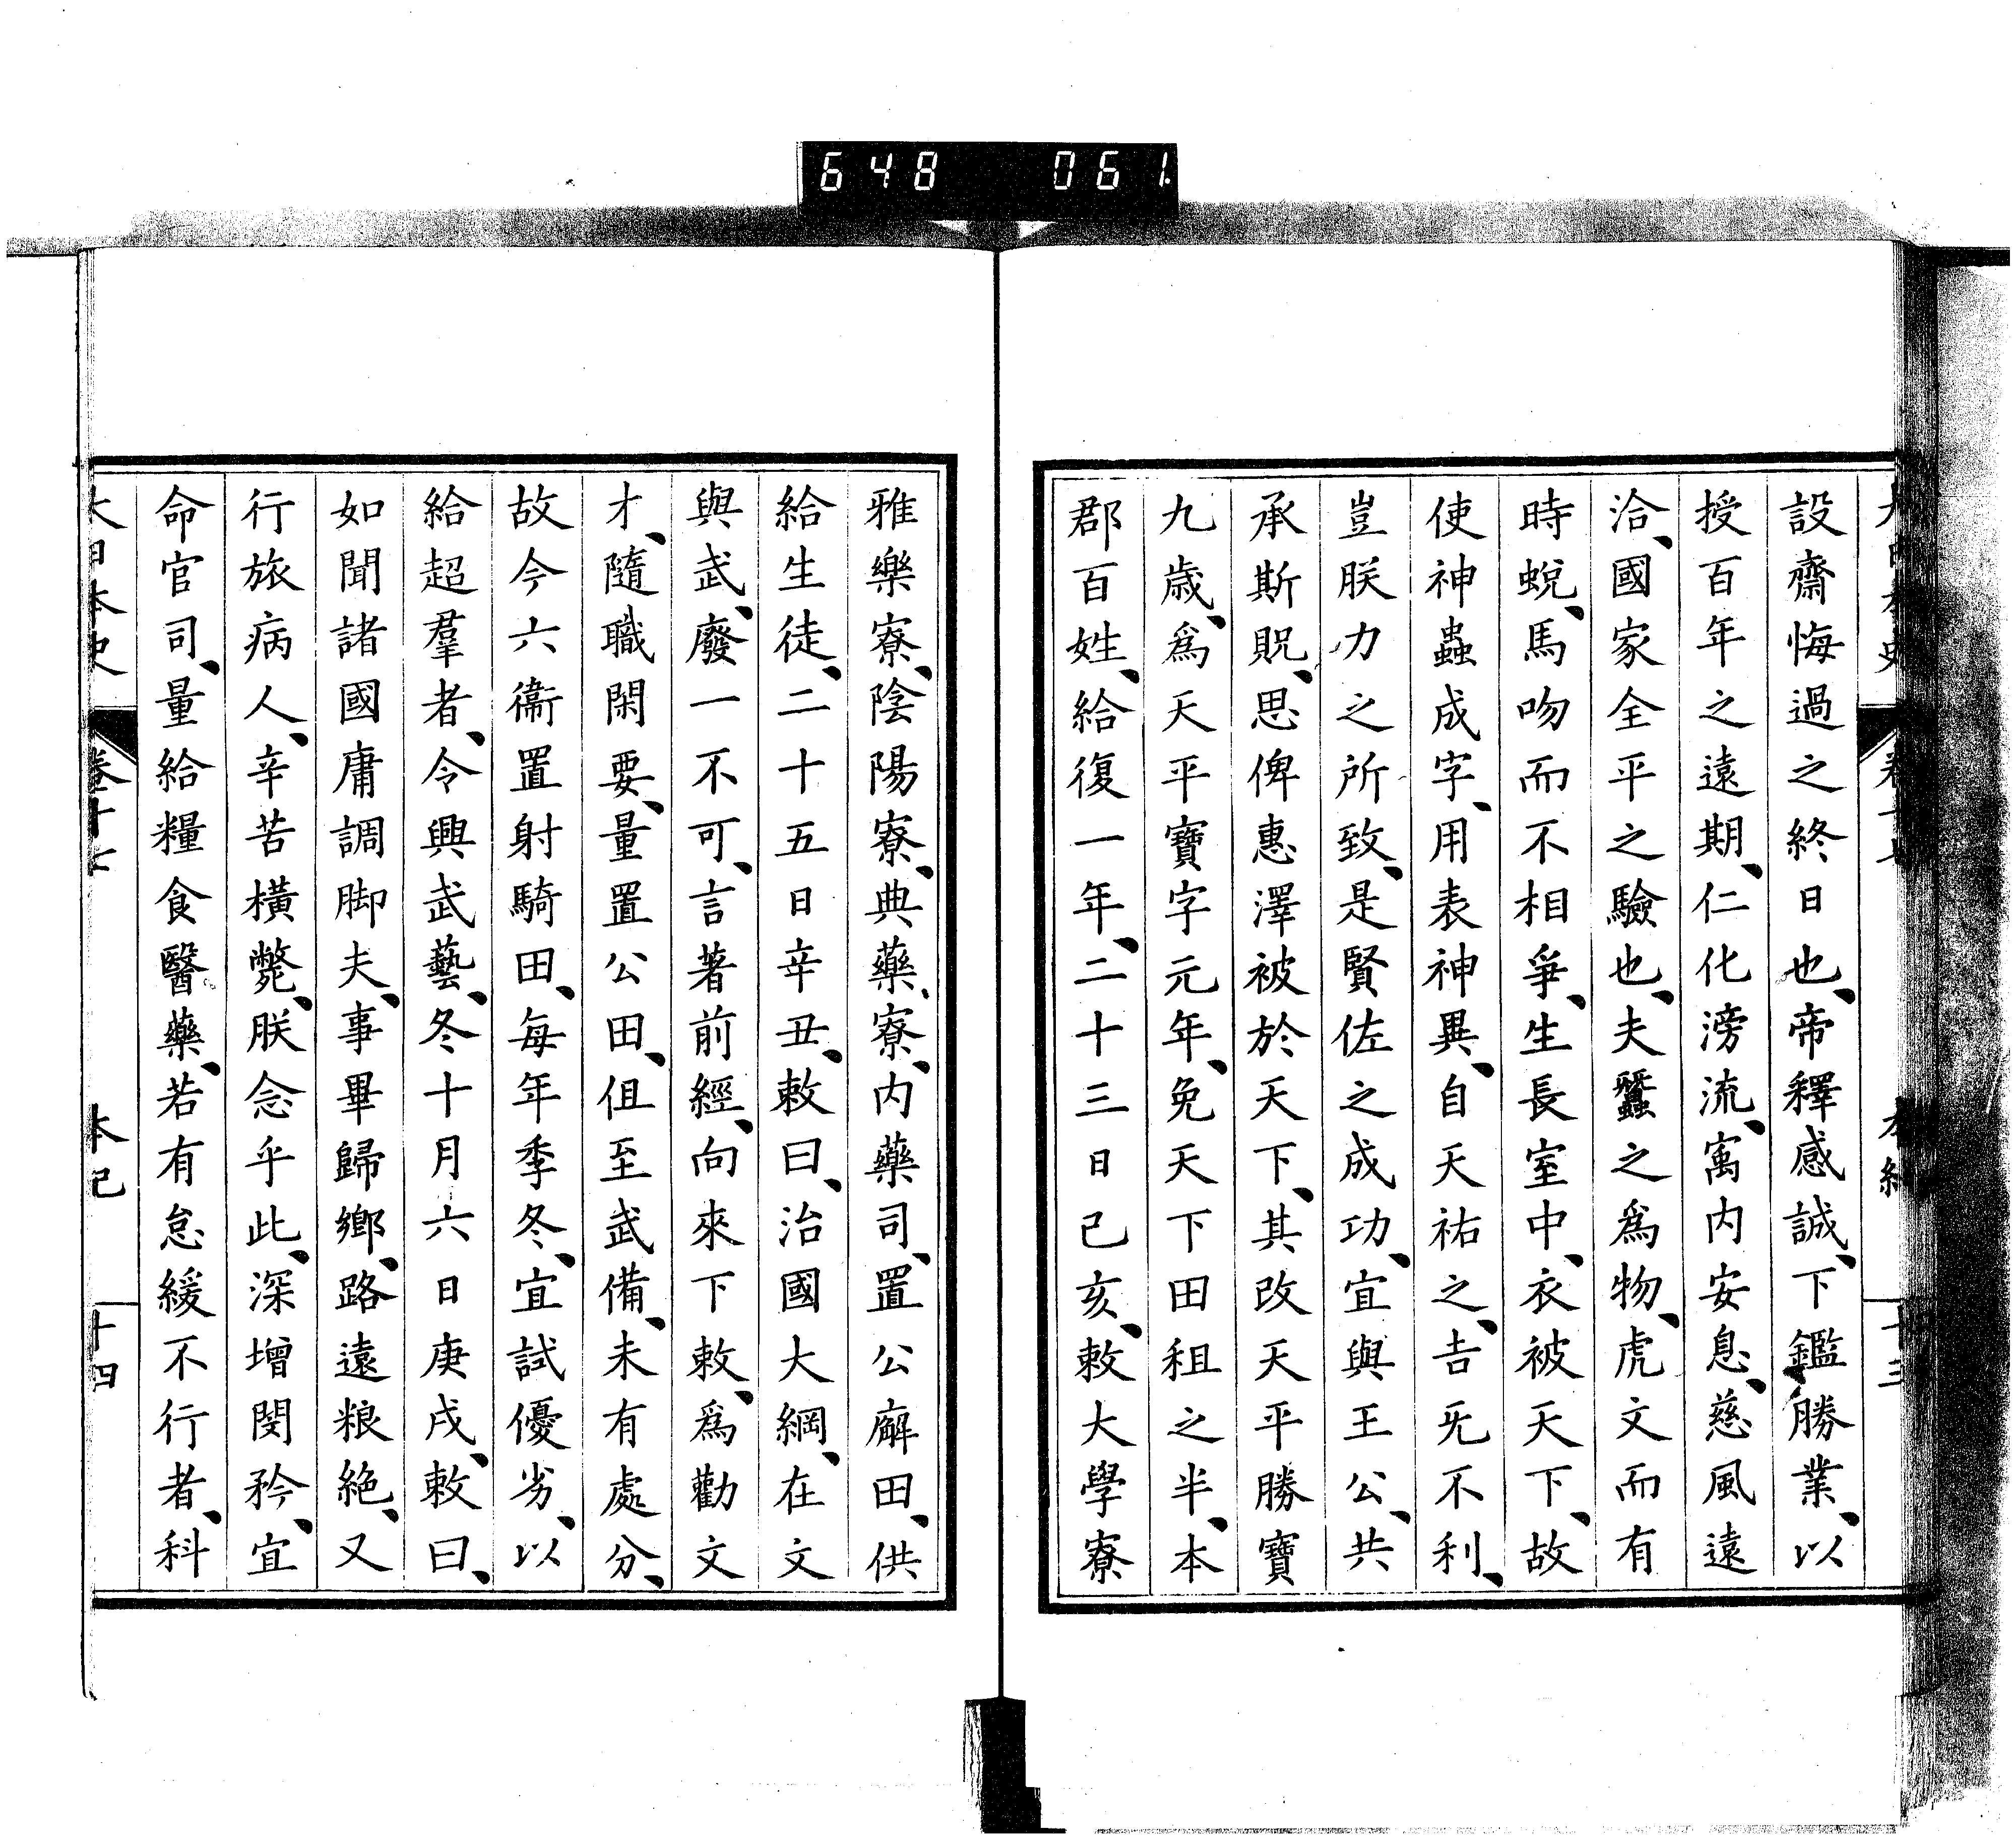 648 061
大日本史 卷十七 本紀 十三
設齋悔過之終日也、帝釋感誠、下鑑勝業、以
授百年之遠期、仁化滂流、寓内安息、慈風遠
洽、國家全平之驗也、夫蠶之爲物、虎文而有
時蛻、馬吻而不相爭、生長室中、衣被天下、故
使神蟲成字、用表神異、自天祐之、吉无不利、
豈朕力之所致、是賢佐之成功、宜與王公、共
承斯貺、思俾惠澤被於天下、其改天平勝寶
九歳、爲天平寶字元年、免天下田租之半、本
郡百姓、給復一年、二十三日己亥、敕大學寮
雅樂寮、陰陽寮、典藥寮、内藥司、置公廨田、供
給生徒、二十五日辛丑、敕曰、治國大綱、在文
與武、廢一不可、言著前經、向來下敕、爲勸文
才、隨職閑要、量置公田、但至武備、未有處分、
故今六衞置射騎田、每年季冬、宜試優劣、以
給超羣者、令興武藝、冬十月六日庚戌、敕曰、
如聞諸國庸調脚夫、事畢歸鄉、路遠粮絶、又
行旅病人、辛苦橫斃、朕念乎此、深增閔矜、宜
命官司、量給糧食醫藥、若有怠緩不行者、科
大日本史 卷十七 本紀 十四